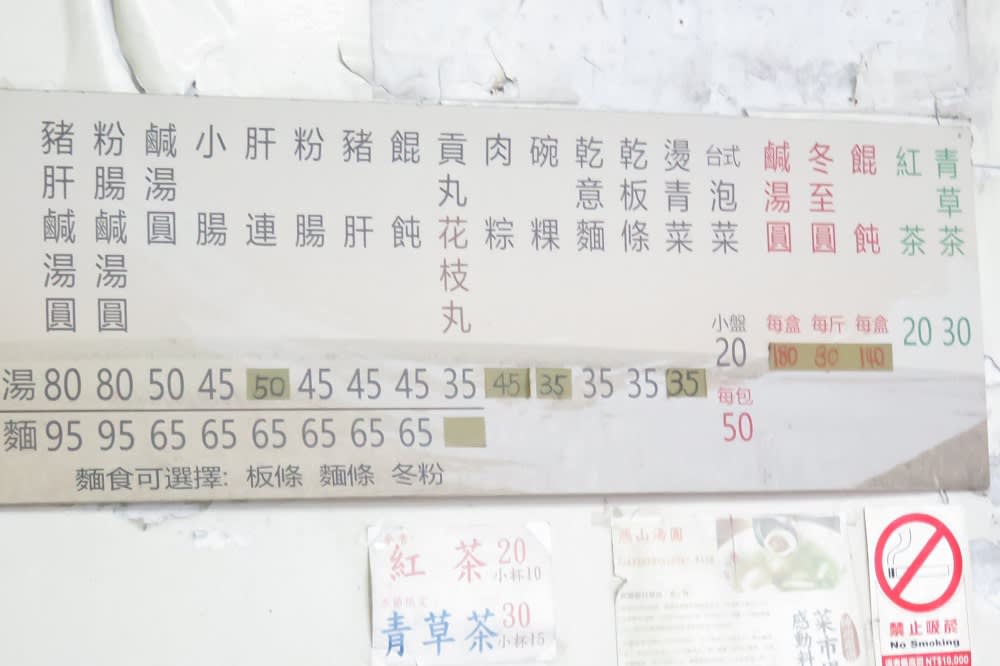 豬肝鹹湯圓
粉腸鹹湯圓
鹹湯圓
小腸
肝連
粉腸
豬肝
餛飩
貢丸花枝丸
肉粽
碗粿
乾意麵
乾板條
燙青菜
台式泡菜
鹹湯圓
冬至圓
餛飩
紅茶
青草茶
小盤 每盒 每斤 每盒
20 180 80 140 20 30
湯 80 80 50 45 50 45 45 45 35 45 35 35 35 35
每包
50
麵 95 95 65 65 65 65 65 65
麵食可選擇: 板條 麵條 冬粉
紅茶 20
小杯10
青草茶 30
小杯15
湯圓
菜市
感動
禁止吸菸
No Smoking
NT$10,000